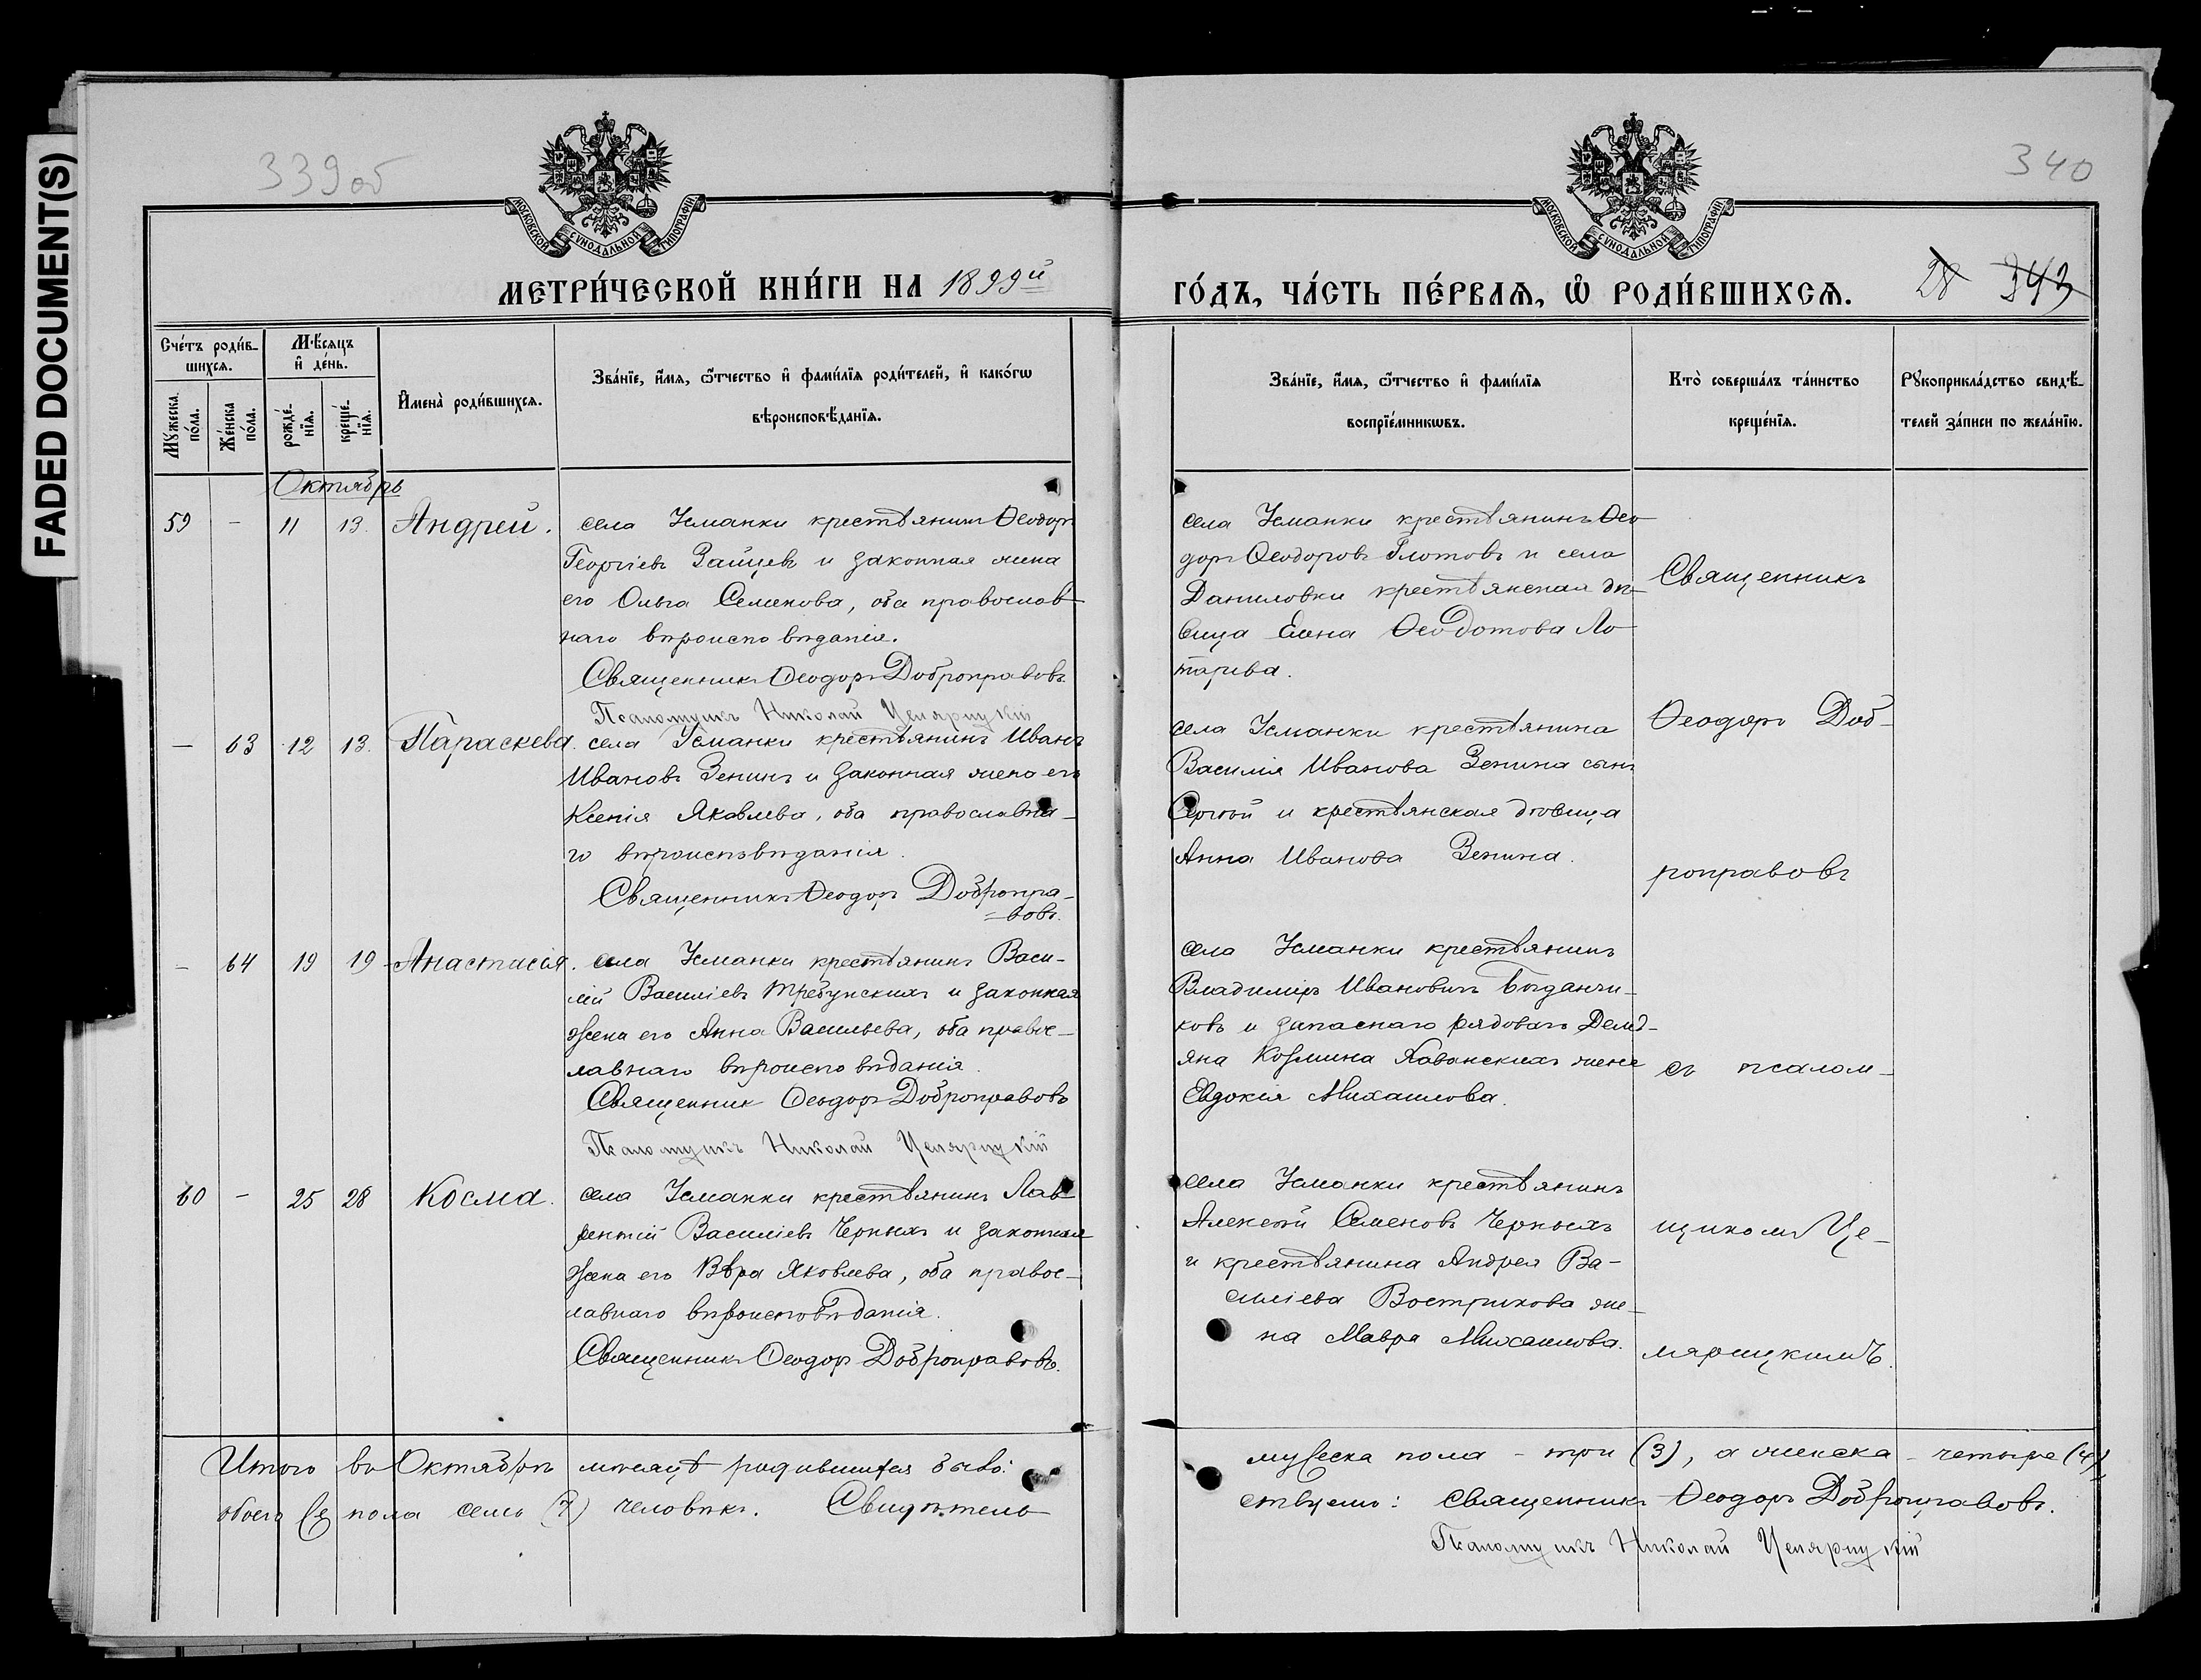 FADED DOCUMENT(S)
339об
340
МОСКОВСКОЙ СѴНОДАЛЬНОЙ ТИПОГРАФІИ
МОСКОВСКОЙ СѴНОДАЛЬНОЙ ТИПОГРАФІИ
МЕТРИ́ЧЕСКОЙ КНИ́ГИ НА 1899й
ГО́ДЪ, ЧА́СТЬ ПЕ́РВАѦ, Ѽ РОДИ́ВШИХСѦ.
28 343
Сче́тъ роди́в-
шихсѧ.
Мꙋ́жеска по́ла.
Же́нска по́ла.
Мѣ́сѧцъ и҆ де́нь.
рожде́-нїѧ.
креще́-нїѧ.
И҆мена̀ роди́вшихсѧ.
Зва́нїе, и҆́мѧ, ѻ҆́тчество и҆ фами́лїѧ роди́телей, и҆ како́гѡ
вѣроисповѣ́данїѧ.
Зва́нїе, и҆́мѧ, ѻ҆́тчество и҆ фами́лїѧ
воспрїе́мникѡвъ.
Кто̀ соверша́лъ та́инство
креще́нїѧ.
Рꙋкоприкла́дство свидѣ́-
телей за́писи по жела́нїю.
Октябрь
59 - 11 13. Андрей. села Усманки крестьянинъ Ѳеодоръ
Георгіевъ Зайцевъ и законная жена
его Ольга Семенова, оба православ-
наго вѣроисповѣданія.
Священникъ Ѳеодоръ Доброправовъ.
Псаломщикъ Николай Целярицкій
села Усманки крестьянинъ Ѳео-
доръ Ѳеодоровъ Глотовъ и села
Даниловки крестьянская дѣ-
вица Елена Ѳеодотова Ло-
тарева.
— 63 12 13. Параскева. села Усманки крестьянинъ Иванъ
Ивановъ Зенинъ и законная жена его
Ксенія Яковлева, оба православна-
го вѣроисповѣданія.
Священникъ Ѳеодоръ Добропра-
=вовъ.
села Усманки крестьянина
Василія Иванова Зенина сынъ
Сергѣй и крестьянская дѣвица
Анна Иванова Зенина.
— 64 19 19 Анастасія. села Усманки крестьянинъ Васи-
лій Василіевъ Требунскихъ и законная
жена его Анна Васильева, оба правос-
лавнаго вѣроисповѣданія.
Священник Ѳеодоръ Доброправовъ
Псаломщикъ Николай Целярицкій
села Усманки крестьянинъ
Владиміръ Ивановичъ Богданчи-
ковъ и запаснаго рядоваго
Козмина жена
Евдокія Михаилова.
60 - 25 28 Косма. села Усманки крестьянинъ Лав-
рентій Василіевъ Черныхъ и законная
жена его Вѣра Яковлева, оба правос-
лавнаго вѣроисповѣданія.
Священникъ Ѳеодоръ Доброправовъ.
села Усманки крестьянинъ
Алексѣй Семеновъ Черныхъ
и крестьянина Андрея Ва-
силіева Вострикова же-
на Мавра Михаилова.
Священникъ
Ѳеодоръ Доб-
роправовъ
съ псалом-
щикомъ Це-
лярицкимъ.
Итого въ Октябрѣ мѣсяцѣ родившихся было:
мужеска пола - три (3), а женска - четыре (4),
обоего же пола семь (7) человѣкъ. Свидѣтель-
ствуемъ: священникъ Ѳеодоръ Доброправовъ.
Псаломщикъ Николай Целярицкій